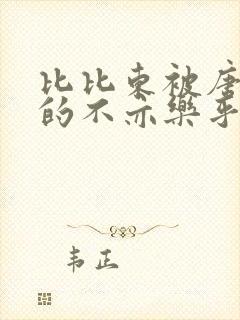 比比东被唐
的不亦乐乎
韦正